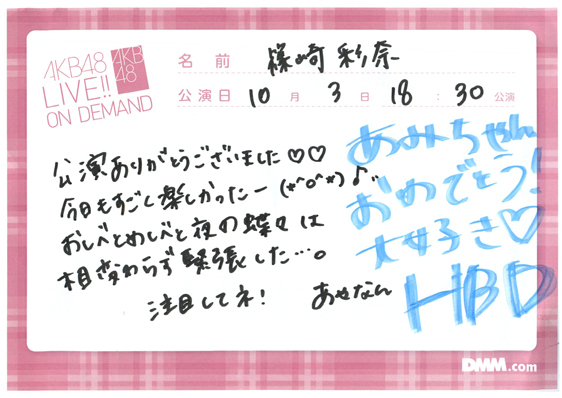 AKB48
LIVE!!
ON DEMAND
AKB
48
名前 篠崎彩奈
公演日 10月3日18:30公演
公演ありがとうございました♡♡
今日もすごく楽しかったー(*^o^*)♪"
おしべとめしべと夜の蝶々は
相変わらず緊張した…。
注目してネ!
あやなん
あみちゃん
おめでとう!
大好き♡
HBD
DMM.com